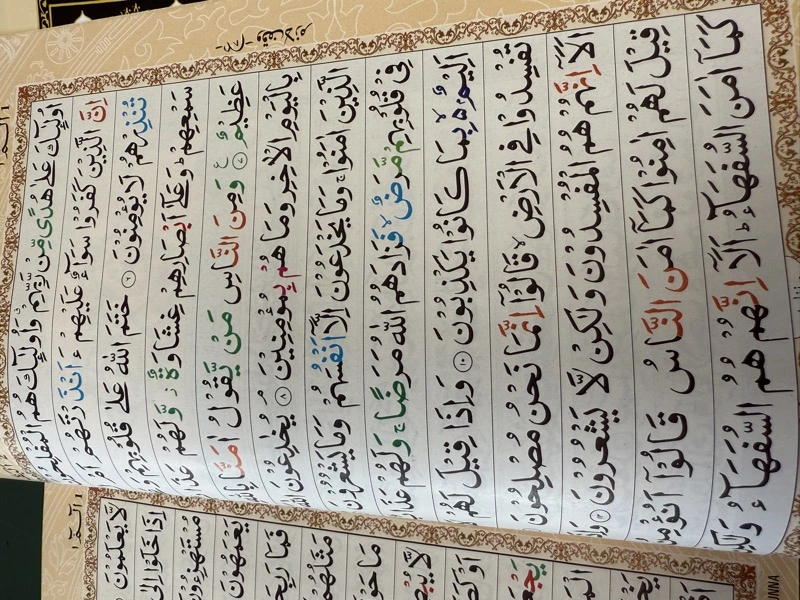 اُولٰٓئِكَ عَلٰى هُدًى مِّنْ رَّبِّهِمْ وَاُولٰٓئِكَ هُمُ الْمُفْلِحُ
اِنَّ الَّذِيْنَ كَفَرُوْا سَوَآءٌ عَلَيْهِمْ ءَاَنْذَرْتَهُمْ اَمْ
تُنْذِرْهُمْ لَا يُؤْمِنُوْنَ ۶ خَتَمَ اللّٰهُ عَلٰى قُلُوْبِهِمْ وَ
سَمْعِهِمْ ؕ وَعَلٰٓى اَبْصَارِهِمْ غِشَاوَةٌ ؗ وَّلَهُمْ عَذَا
عَظِيْمٌ ۷ وَمِنَ النَّاسِ مَنْ يَّقُوْلُ اٰمَنَّا بِاللّٰهِ
بِالْيَوْمِ الْاٰخِرِ وَمَا هُمْ بِمُؤْمِنِيْنَ ۸ يُخٰدِعُوْنَ اللّٰ
الَّذِيْنَ اٰمَنُوْا ۚ وَمَا يَخْدَعُوْنَ اِلَّاۤ اَنْفُسَهُمْ وَمَا يَشْعُرُوْنَ
فِيْ قُلُوْبِهِمْ مَّرَضٌ ۙ فَزَادَهُمُ اللّٰهُ مَرَضًا ۚ وَلَهُمْ عَذَا
اَلِيْمٌۢ ۙ بِمَا كَانُوْا يَكْذِبُوْنَ ۱۰ وَاِذَا قِيْلَ لَهُمْ
تُفْسِدُوْا فِي الْاَرْضِ ۙ قَالُوْٓا اِنَّمَا نَحْنُ مُصْلِحُوْنَ
اَلَآ اِنَّهُمْ هُمُ الْمُفْسِدُوْنَ وَلٰكِنْ لَّا يَشْعُرُوْنَ
قِيْلَ لَهُمْ اٰمِنُوْا كَمَآ اٰمَنَ النَّاسُ قَالُوْٓا اَنُؤْمِنُ
كَمَآ اٰمَنَ السُّفَهَآءُ ؕ اَلَآ اِنَّهُمْ هُمُ السُّفَهَآءُ وَلٰكِ
لَّا يَعْلَمُوْنَ
اِذَا خَلَوْا اِلٰى
مُسْتَهْزِءُوْنَ
يَعْمَهُوْنَ
فَمَا رَبِحَ
مَثَلُهُمْ
مَا حَوْ
لَّا يُبْصِ
اَوْ كَصَ
يَجْعَ